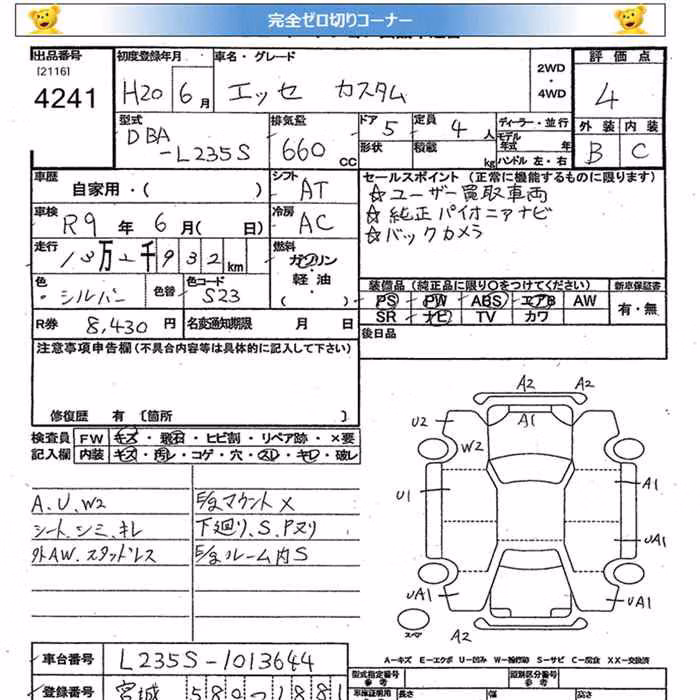 完全ゼロ切りコーナー
出品番号 初度登録年月 車名・グレード 2WD・4WD 評価点
[2116]
4241 H20 6月 エッセ カスタム 4
型式 排気量 ドア 5 定員 4人 ディーラー・並行 外装 内装
DBA-L235S 660 CC 形状 積載 kg モデル年式 年 ハンドル 左・右 B C
車歴 シフト セールスポイント (正常に機能するものに限ります)
自家用・( ) AT ☆ユーザー買取車両
車検 冷房 ☆純正パイオニアナビ
R9年 6月( 日) AC ☆バックカメラ
走行 燃料
万 千932km ガソリン
軽油
( )
色 色替 色コード 装備品 (純正品に限り○をつけてください) 新車保証書
・シルバー S23 PS PW ABS エアB AW 有・無
SR ナビ TV カワ
R券 8,430円 名変通知期限 月 日
後日品
注意事項申告欄 (不具合内容等は具体的に記入して下さい)
修復歴 有 〔箇所 〕
検査員 FW キズ・飛石・ヒビ割・リペア跡・×要
記入欄 内装 キズ・汚レ・コゲ・穴・スレ・キレ・破レ
A2 A2
A1
U2
W2
U1 A1
UA1
UA1 UA1
スペア
A2
A.U.W2 E/gマウント×
シート、シミ、キレ 下廻り、S、Pヌリ
外AW.スタッドレス E/gルーム内S
A-キズ E-エクボ U-凹み W-補修跡 S-サビ C-腐食 XX-交換済
車台番号 L235S-1013644
型式指定番号 類別区分番号
参考 参考
登録番号 宮城 580 188
車検証 長さ 幅 高さ